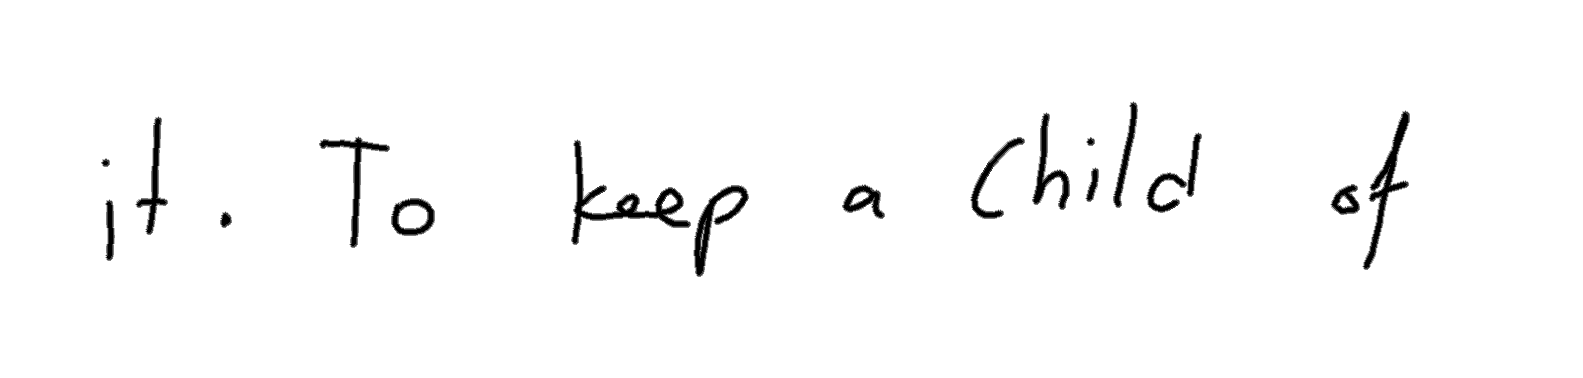 it. To keep a child of